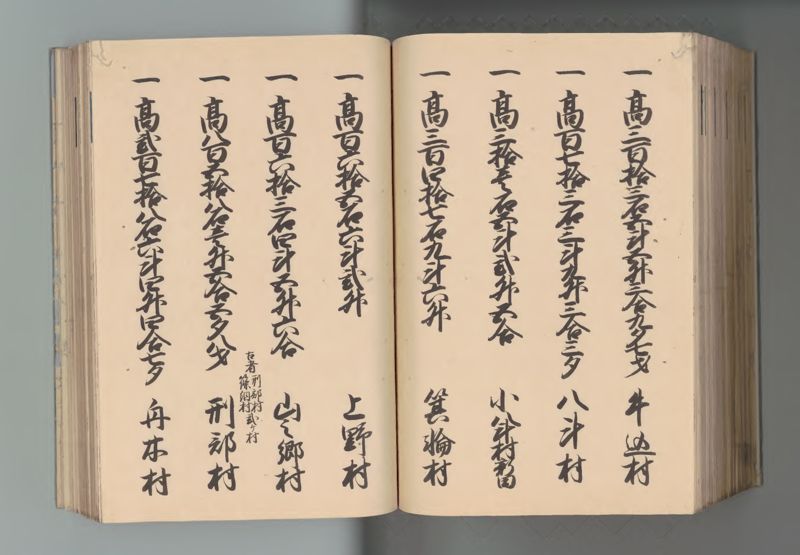 一高三百拾三石五斗五升三合九夕七才 牛込村
一高百七拾三石三斗九升三合三夕 八斗村
一高三拾壱石五斗弐升五合 小八斗村新田
一高三百四拾七石九斗六升 箕輪村
一高百六拾五石六斗弐升 上野村
一高百六拾三石四斗五升六合 山之郷村
一高八百五拾八石壱升五合五夕八才 刑部村
古者刑部村
篠網村弐ケ村
一高弐百七拾八石六斗四升四合七夕 舟木村